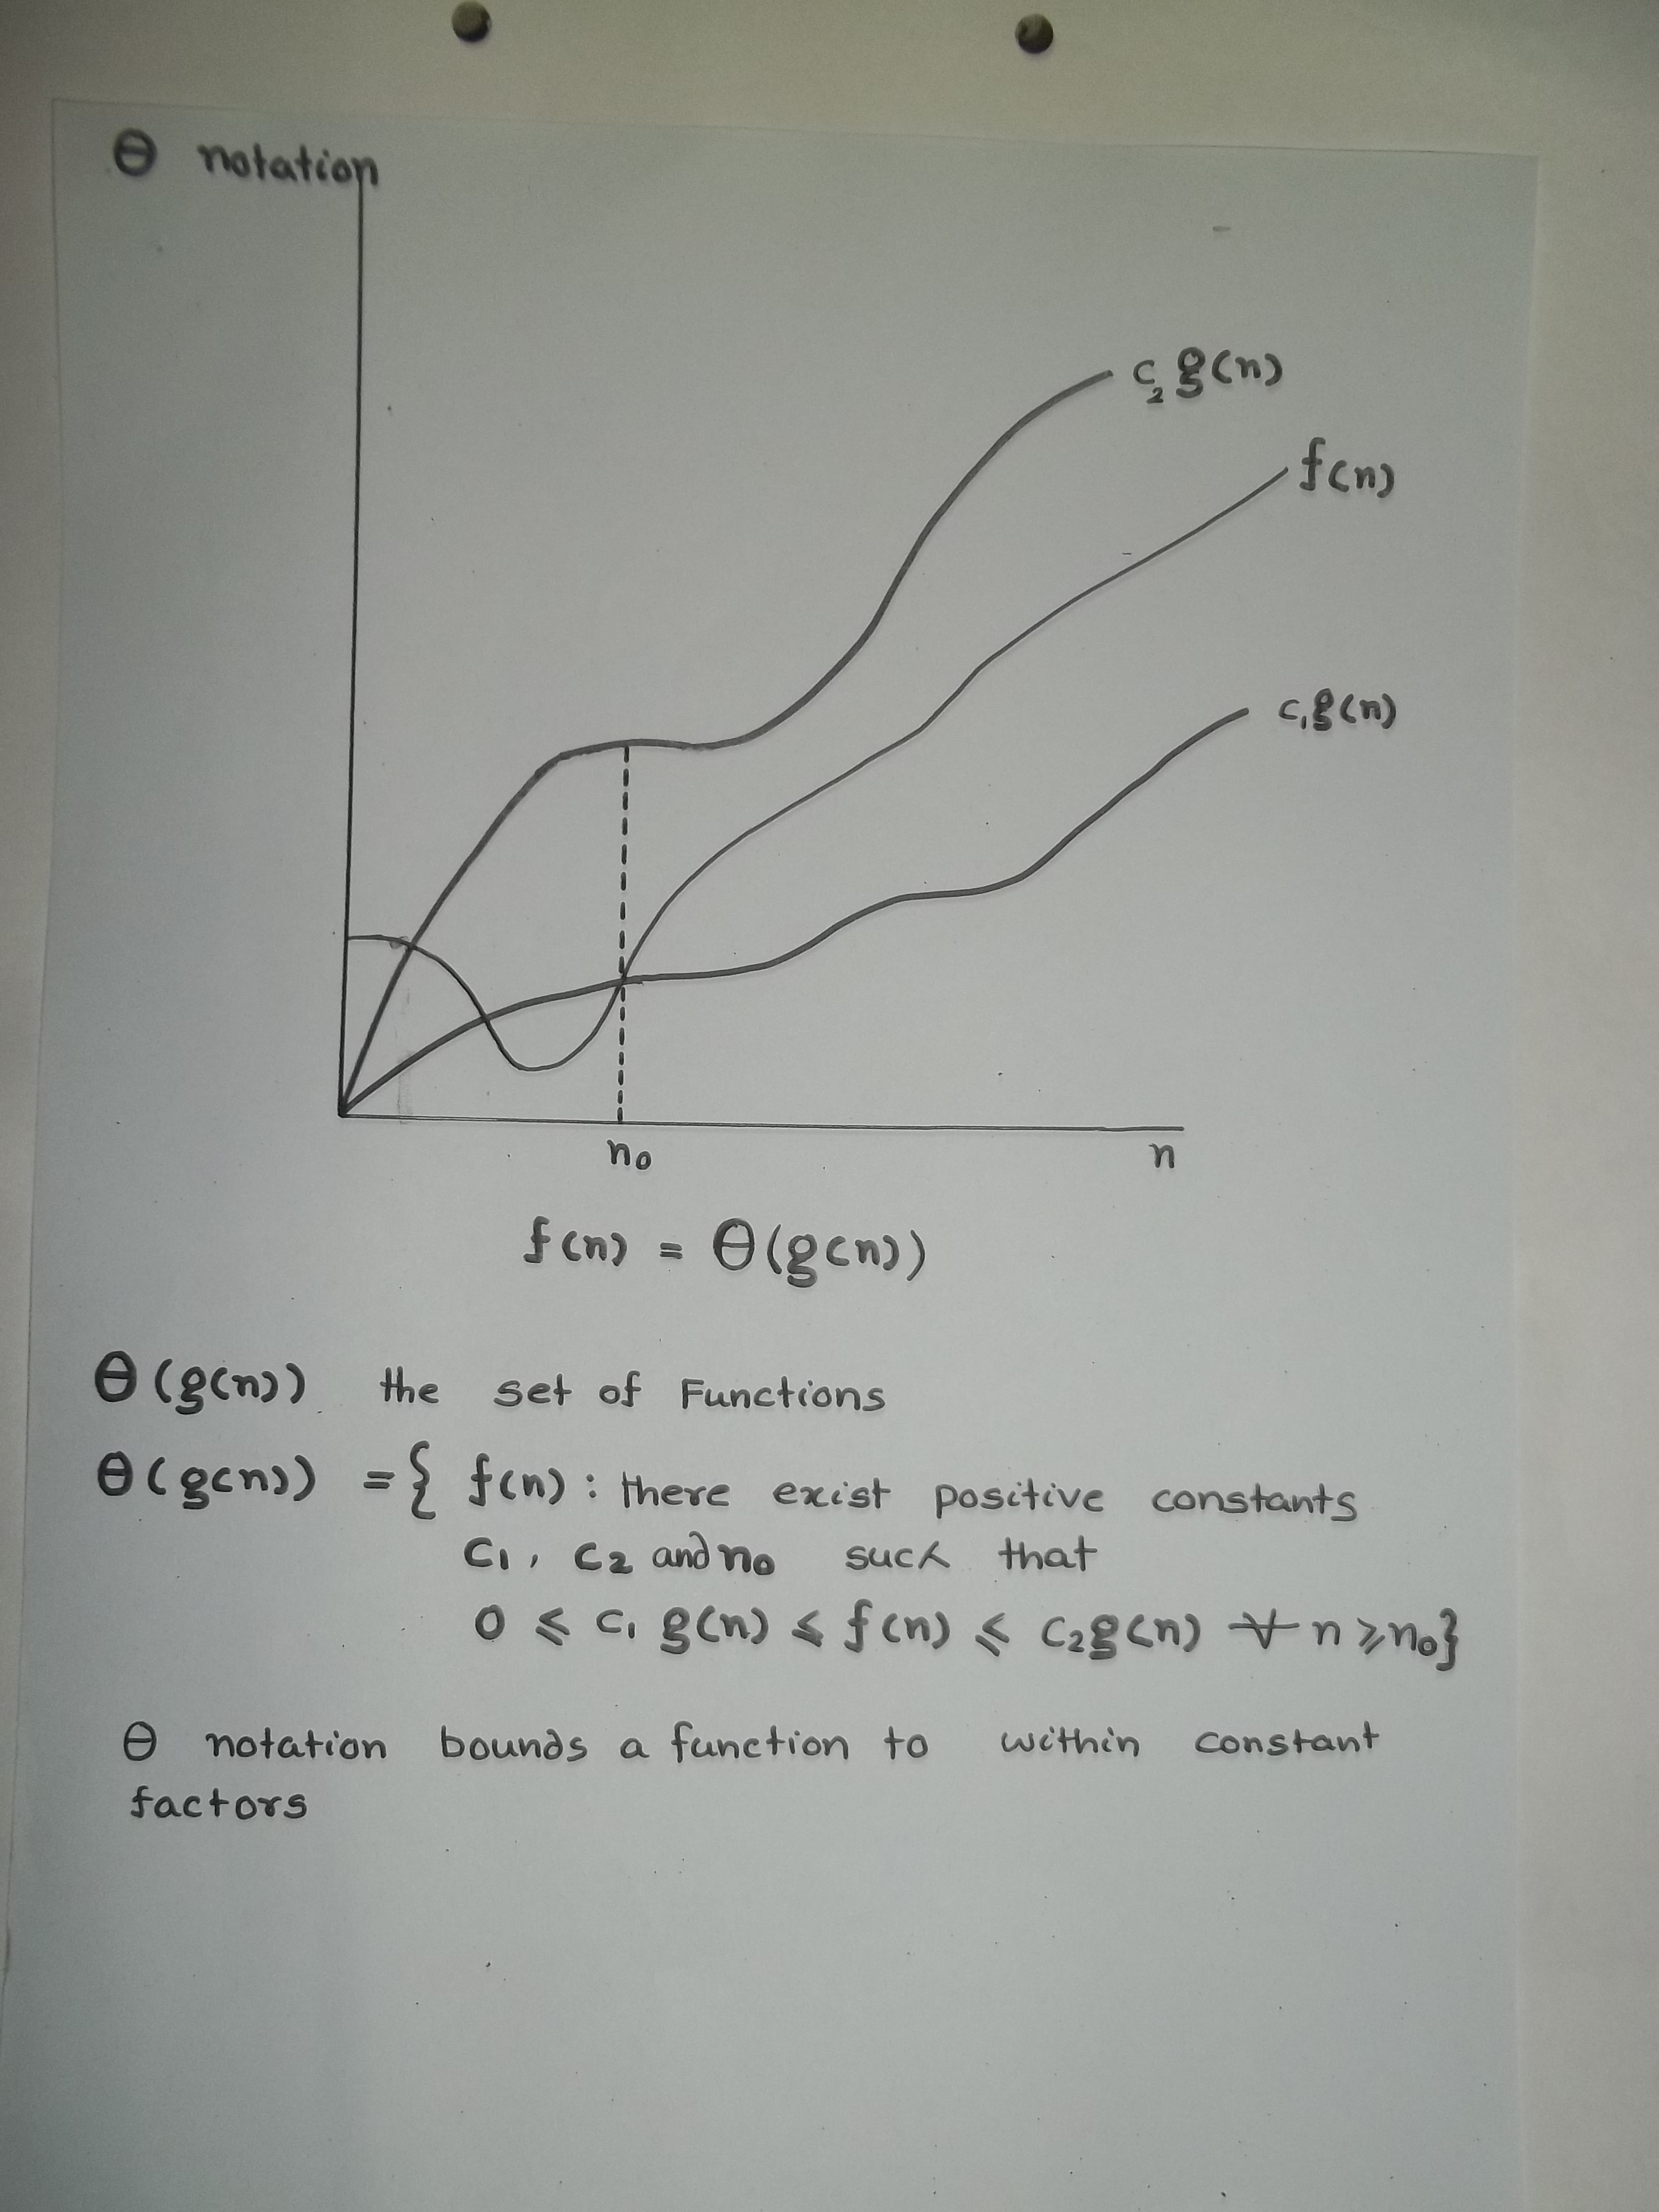 Θ notation
c₂ g(n)
f(n)
c₁g(n)
n₀ n
f(n) = Θ(g(n))
Θ(g(n)) the set of Functions
Θ(g(n)) = { f(n) : there exist positive constants
C₁, C₂ and n₀ such that
0 ⩽ c₁ g(n) ⩽ f(n) ⩽ c₂g(n) ∀ n ⩾ n₀}
Θ notation bounds a function to within constant
factors